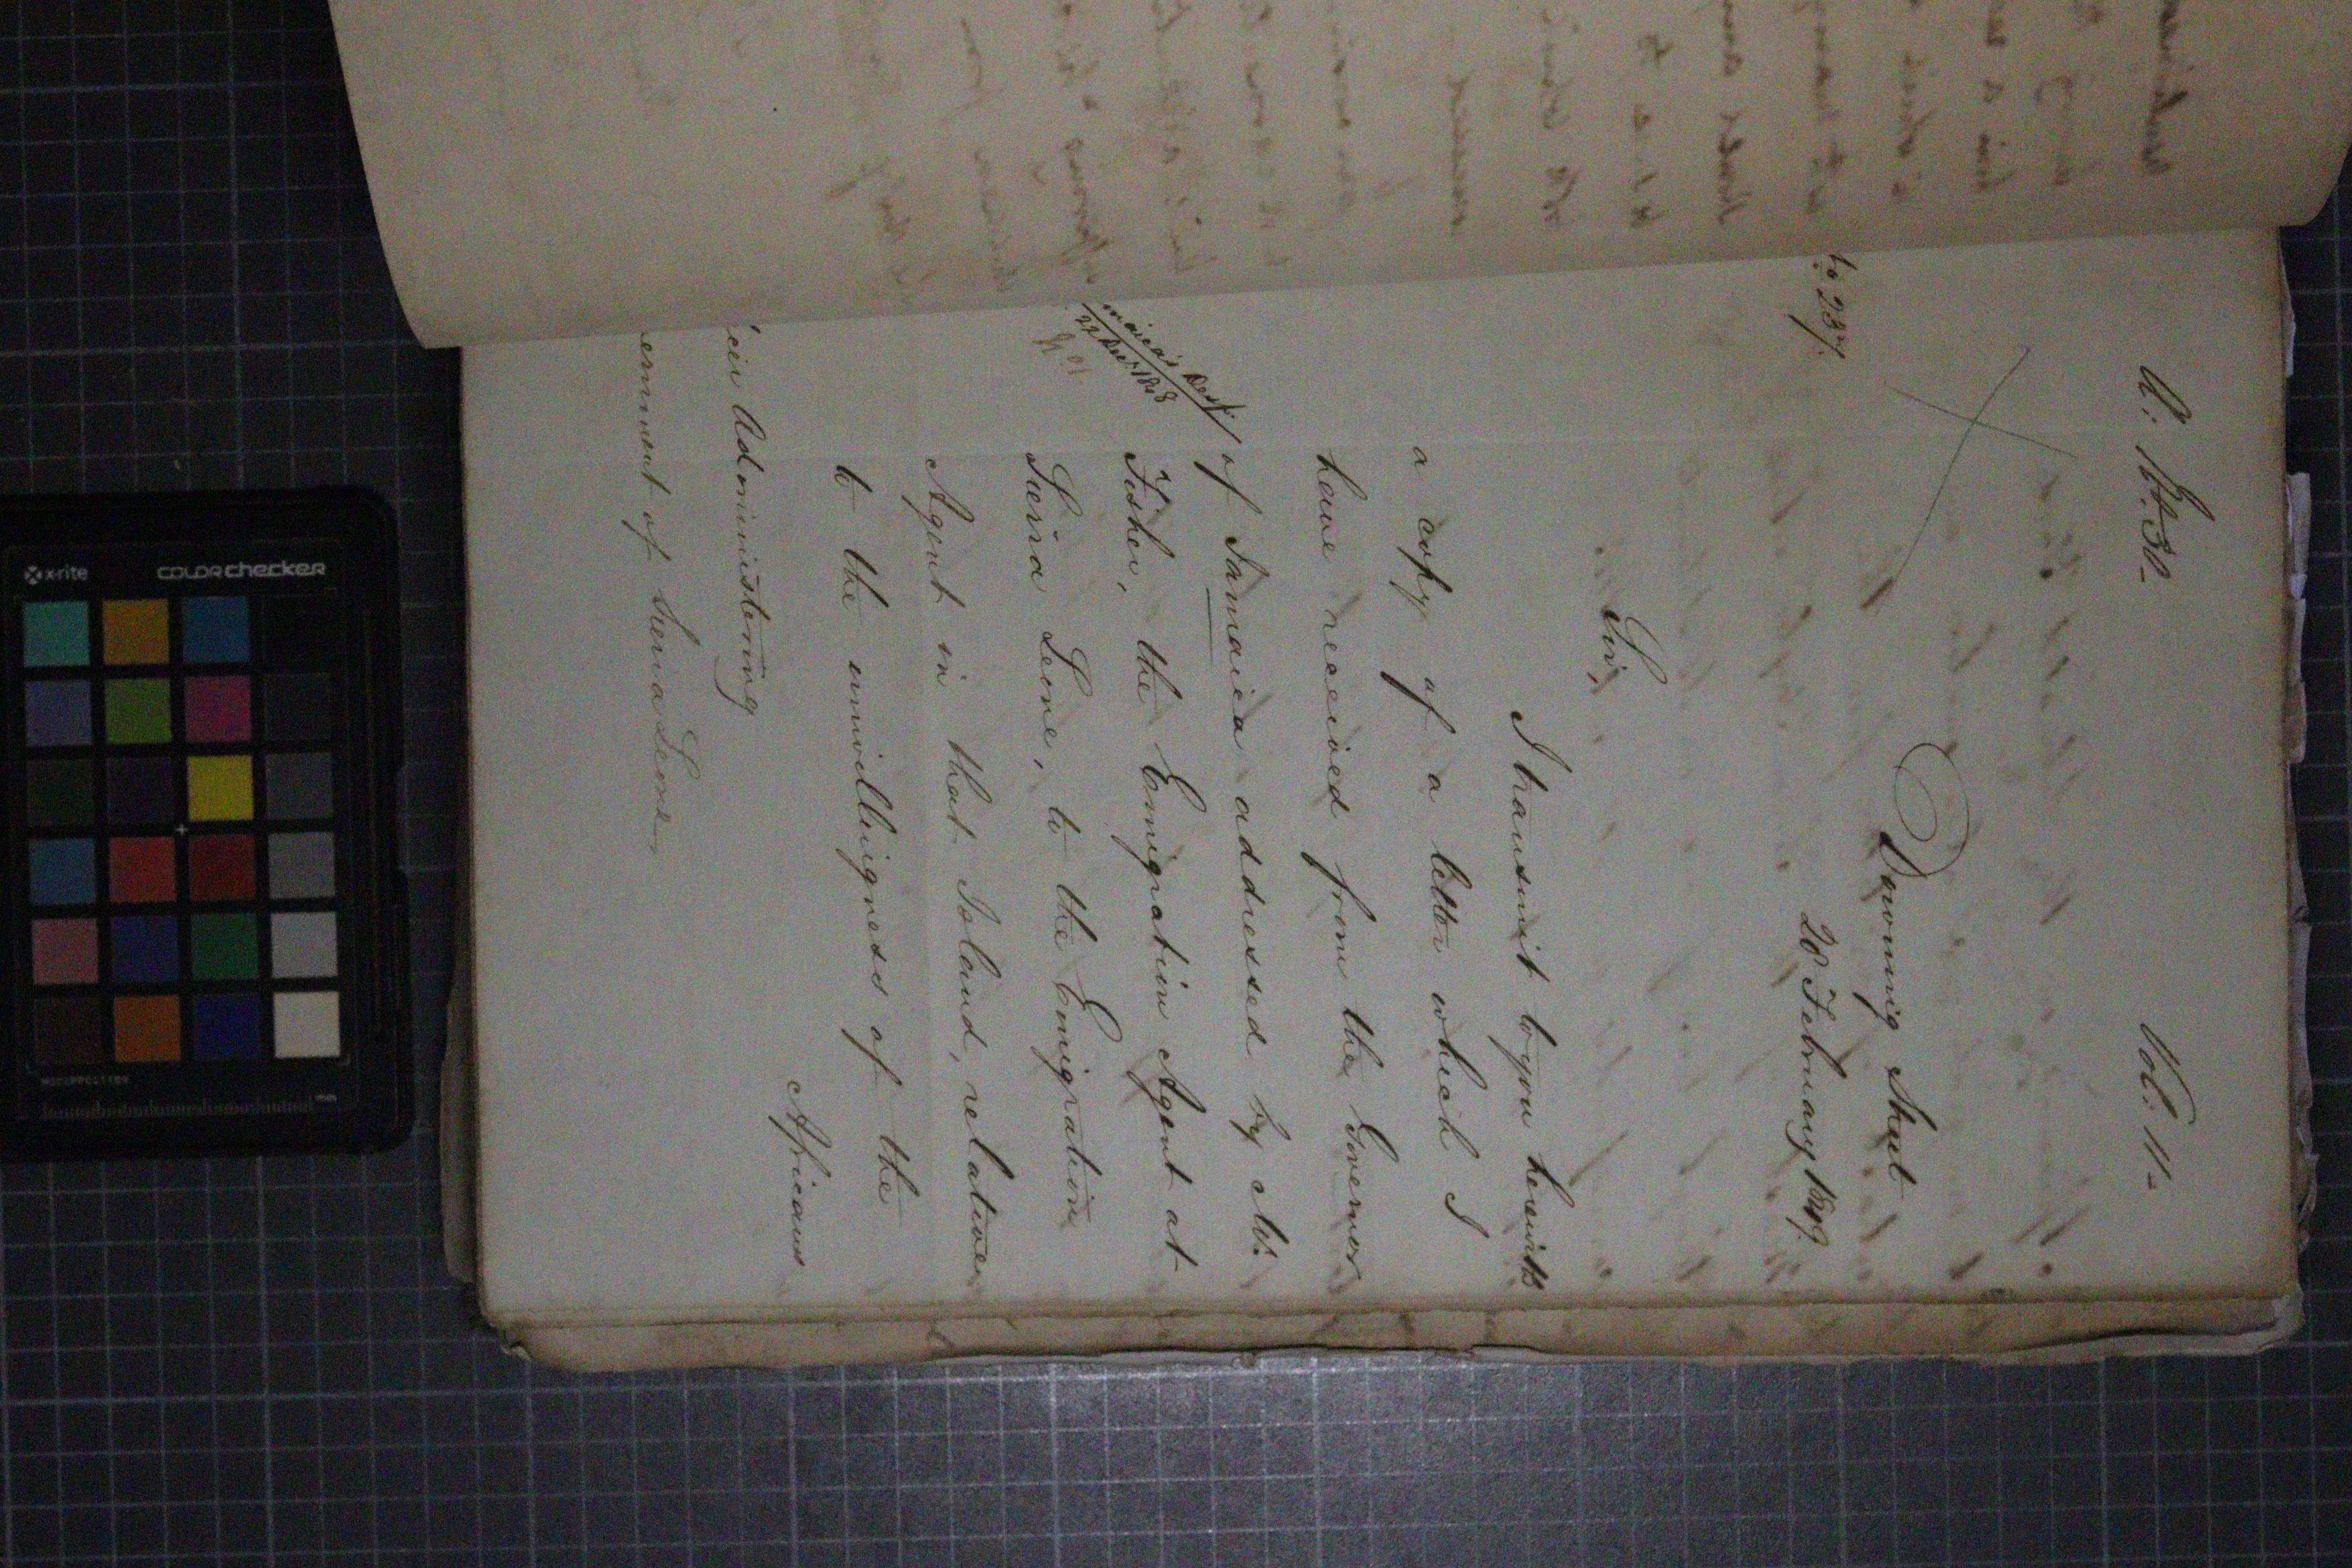 A: No. 30- Vol: 11-
Downing Street
28 February 1849.
No 237.
Sir,
I transmit to you herewith
a copy of a letter which I
have received from the Governor
of Jamaica addressed by Mr.
Fisher, the Emigration Agent at
Sierra Leone, to the Emigration
Agent in that Island, relative
to the unwillingness of the
Africans
maica's Desp:
22 Dec. 1848
icer Administering
ernment of Sierra Leone
x-rite colorchecker
mm